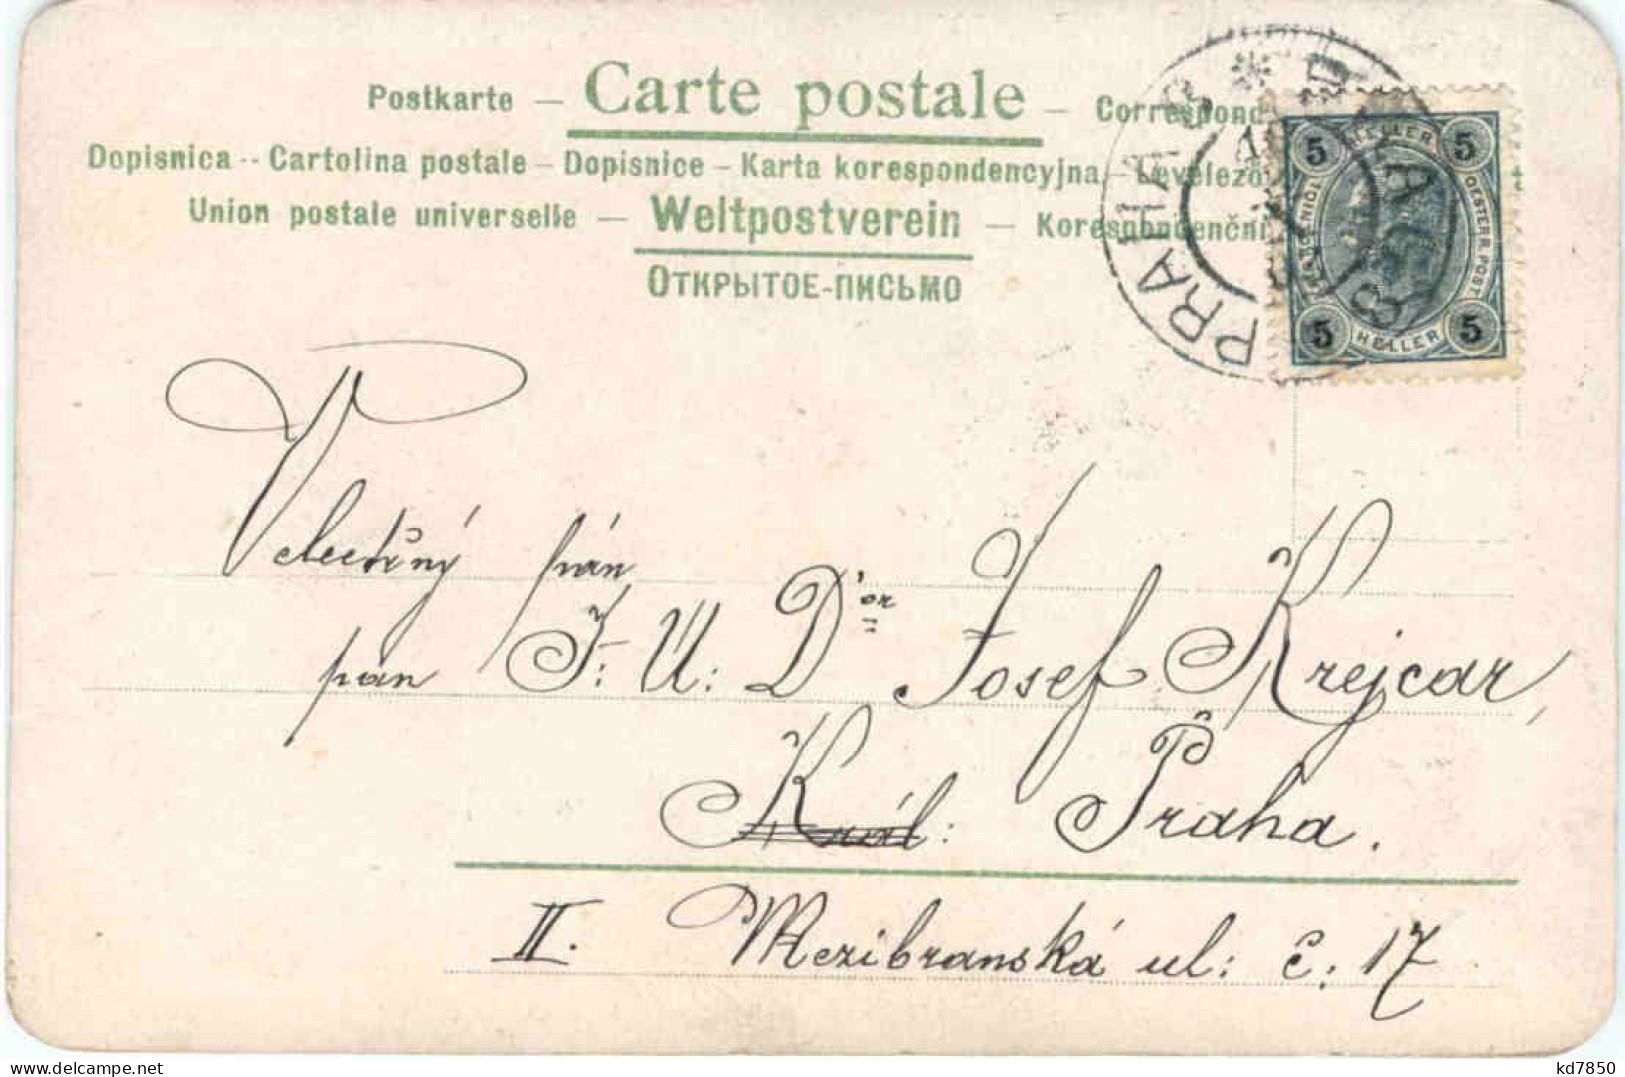 Postkarte – Carte postale – Correspond
Dopisnica -- Cartolina postale – Dopisnice – Karta korespondencyjna – Levelező
Union postale universelle – Weltpostverein – Korespondenční
Открытое-письмо
PRAHA
5 HELLER 5
OESTERR. POST
5 HELLER 5
Velectěný pán
pán J. U. D'or Josef Krejcar,
Král: Praha.
II. Mezibranská ul: č: 17
kd7850